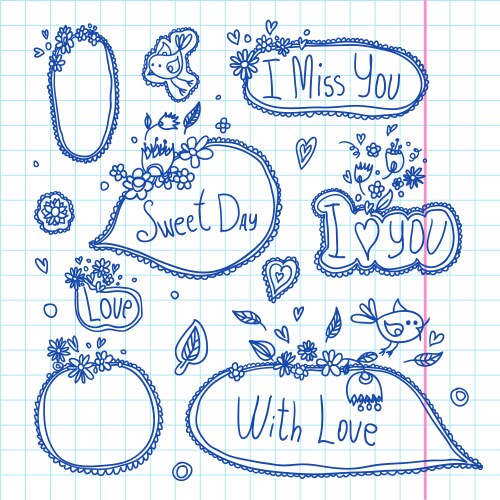 I Miss You
Sweet Day
I ♡ you
Love
With Love